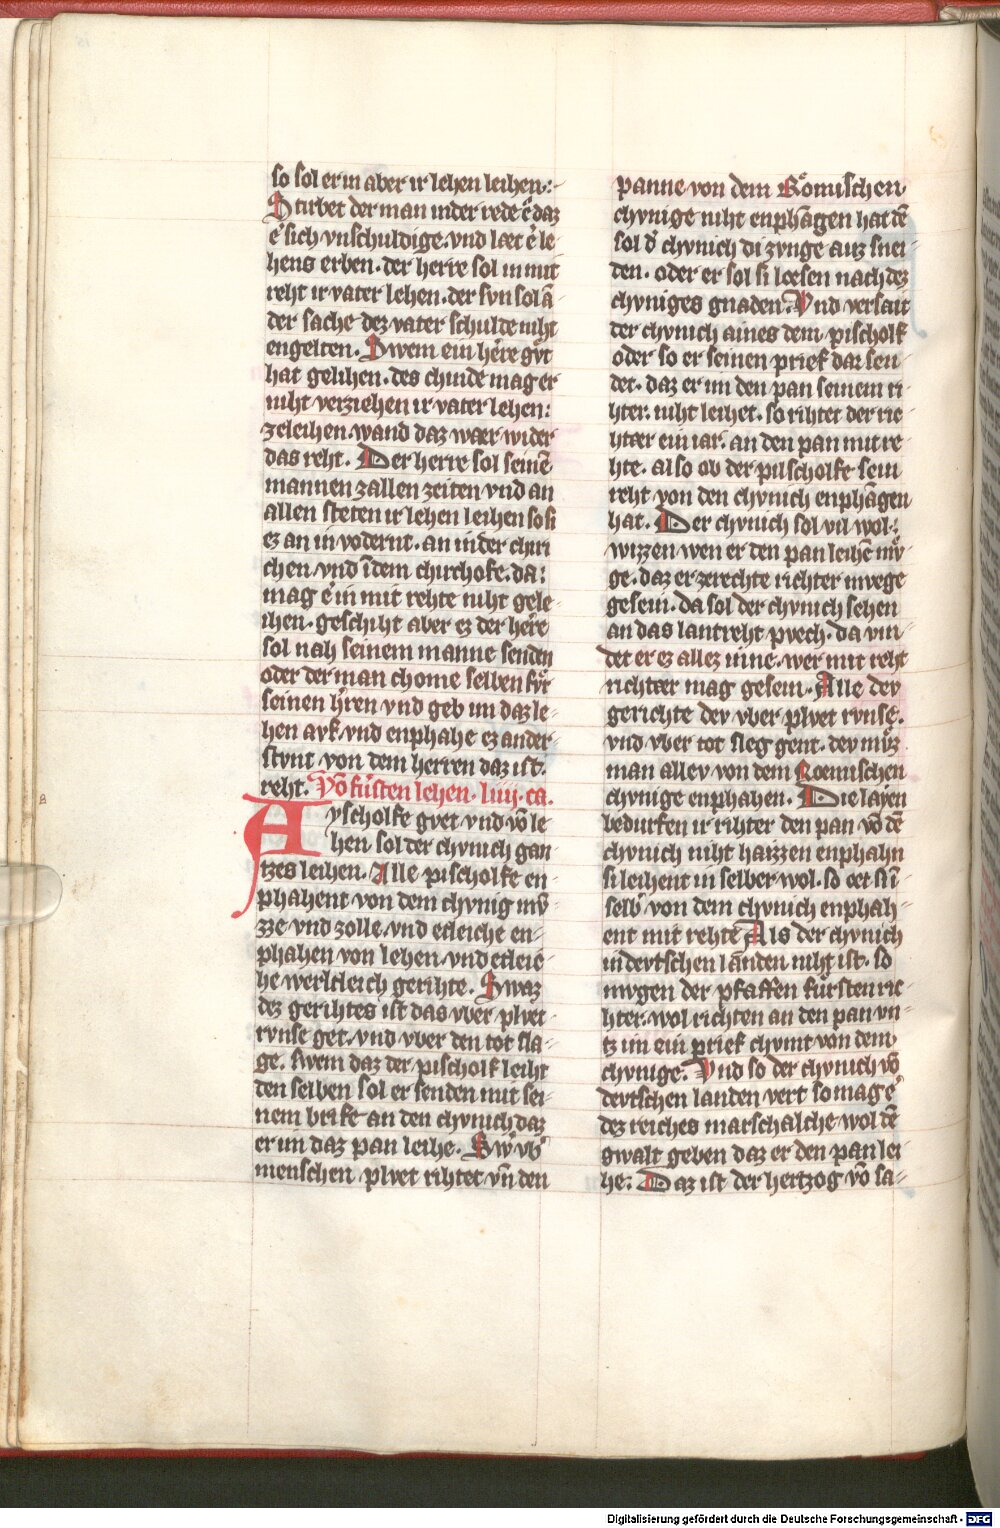 so sol er in aber ir lehen leihen.
Stirbet der man in der rede e daz
er sich vnschuldige. vnd læt er le-
hens erben. der herre sol in mit
reht ir vater lehen. der svn sol ā-
der sache dez vater schulde niht
engelten. Swem ein herre gvt
hat gelihen. des chinde mag er
niht verziehen ir vater lehen:
zeleihen. wand daz wær wider
das reht. Der herre sol seinē
mannen zallen zeiten vnd an
allen steten ir lehen leihen so si
ez an in vodernt. an in der chir-
chen vnd īdem chirchofe. da:
mag er in mit rehte niht gele-
ihen. geschiht aber ez der herre
sol nah seinem manne senden
oder der man chome selben fvr
seinen h'ren vnd geb im daz le-
hen avf vnd enphahe ez ander-
stvnt von dem herren daz ist.
reht. Vō fursten lehen. liiij. ca.
Pyscholfe gvet vnd vō le-
hen sol der chvnich gan-
tzes leihen. Alle pischolfe en-
phahent von dem chvnig mv̄-
zze vnd zolle. vnd etleiche en-
phahen von lehen. vnd etleic-
he werltleich gerihte. Swaz
dez gerihtes ist das vber plvet-
rvnse get. vnd vber den tot sla-
ge. swem daz der pischolf leiht
den selben sol er senden mit sei-
nem brife an den chvnich daz
er im daz pan leihe. Sw' vb'
menschen plvet rihtet vn̄ den
panne von dem Romischen
chvnige niht enphāgen hat dē
sol d' chvnich di zvnge auz snei-
den. oder er sol si lœsen nach dez
chvniges gnaden. Vnd versait
der chvnich aines dem pischolf
oder so er seinen prief dar sen-
det. daz er im den pan seinem ri-
hter niht leihet. so rihtet der ric-
htær ein iar. an den pan mit re-
hte. also ob der pilscholfe sein
reht von den chvnich enphāgen
hat. Der chvnich sol vil wol:
wizzen wen er den pan leihē mv-
ge. daz er zerechte richter mvege
gesein. da sol der chvnich sehen
an das lantreht pvech. da vin-
det er ez allez inne. wer mit reht
richtær mag gesein. Alle dev
gerichte dev vber plvet rvnse.
vnd vber tot sleg gent. dev mvz
man allev von dem Rœmischen
chvnige enphahen. Die layen
bedurfen ir rihter den pan vō dē
chvnich niht haizzen enphahn
si leihent in selber wol. so oet si ī
selb' von dem chvnich enphah-
ent mit rehte Als der chvnich
in devtschen lāden niht ist. so
mvgen der pfaffen fursten ric-
hter. wol richten an den pan vn-
tz im ein prief chvmt von dem
chvnige. Vnd so der chvnich vō
devtschen landen vert so mag e'
dez reiches marschalche wol dē
gwalt geben daz er den pan lei
he: Daz ist der hertzog vō sa-
Digitalisierung gefördert durch die Deutsche Forschungsgemeinschaft - DFG